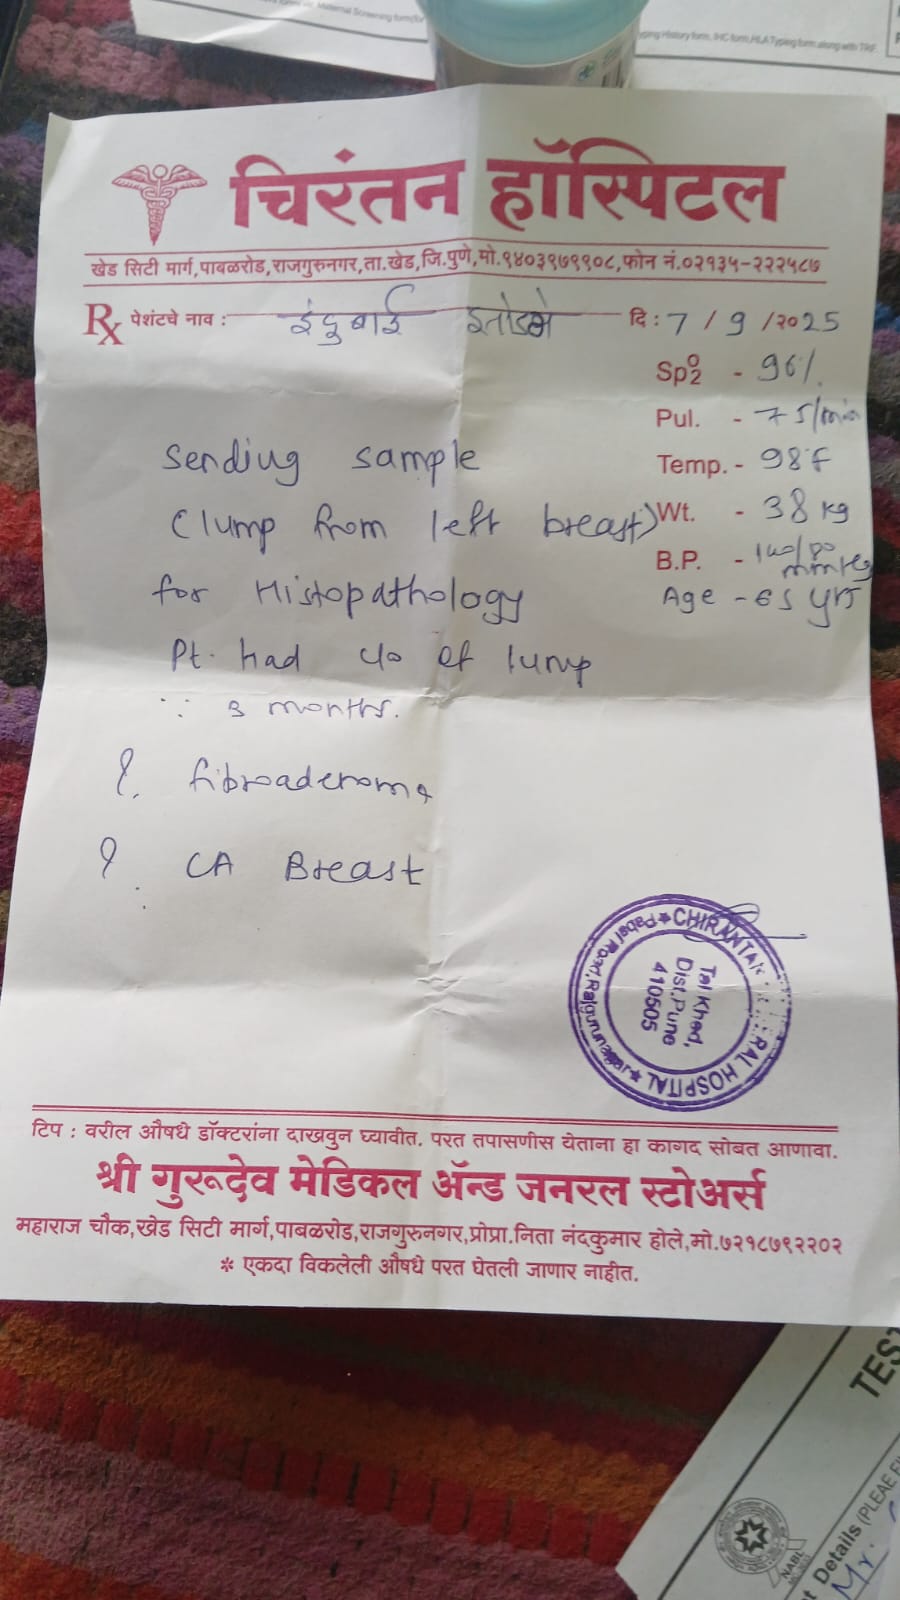 Maternal Screening form(for
yping History form, IHC form,HLA Typing form along with TRF.
चिरंतन हॉस्पिटल
खेड सिटी मार्ग,पाबळरोड,राजगुरुनगर,ता.खेड,जि.पुणे,मो.९४०३९७९९०८,फोन नं.०२१३५-२२२५८७
Rx पेशंटचे नाव : इंदुबाई दि : 7 / 9 /२०25
Sp2 - 96%
Pul. - 75/min
Temp. - 98°F
Wt. - 38 kg
B.P. - 140/80 mmHg
Age - 65 yrs
Sending sample
(lump from left breast)
for Histopathology
Pt. had c/o of lump
∵ 3 months.
? fibroadenoma
? CA Breast
CHIRANTA RAL HOSPITAL
Pabal Road, Rajgurunagar
Tal Khed,
Dist. Pune
410505
टिप : वरील औषधे डॉक्टरांना दाखवुन घ्यावीत. परत तपासणीस येताना हा कागद सोबत आणावा.
श्री गुरूदेव मेडिकल ॲन्ड जनरल स्टोअर्स
महाराज चौक,खेड सिटी मार्ग,पाबळरोड,राजगुरुनगर,प्रोप्रा.निता नंदकुमार होले,मो.७२१८७९२२०२
* एकदा विकलेली औषधे परत घेतली जाणार नाहीत.
TES
NABL
t Details (PLEAE FI
Mr.